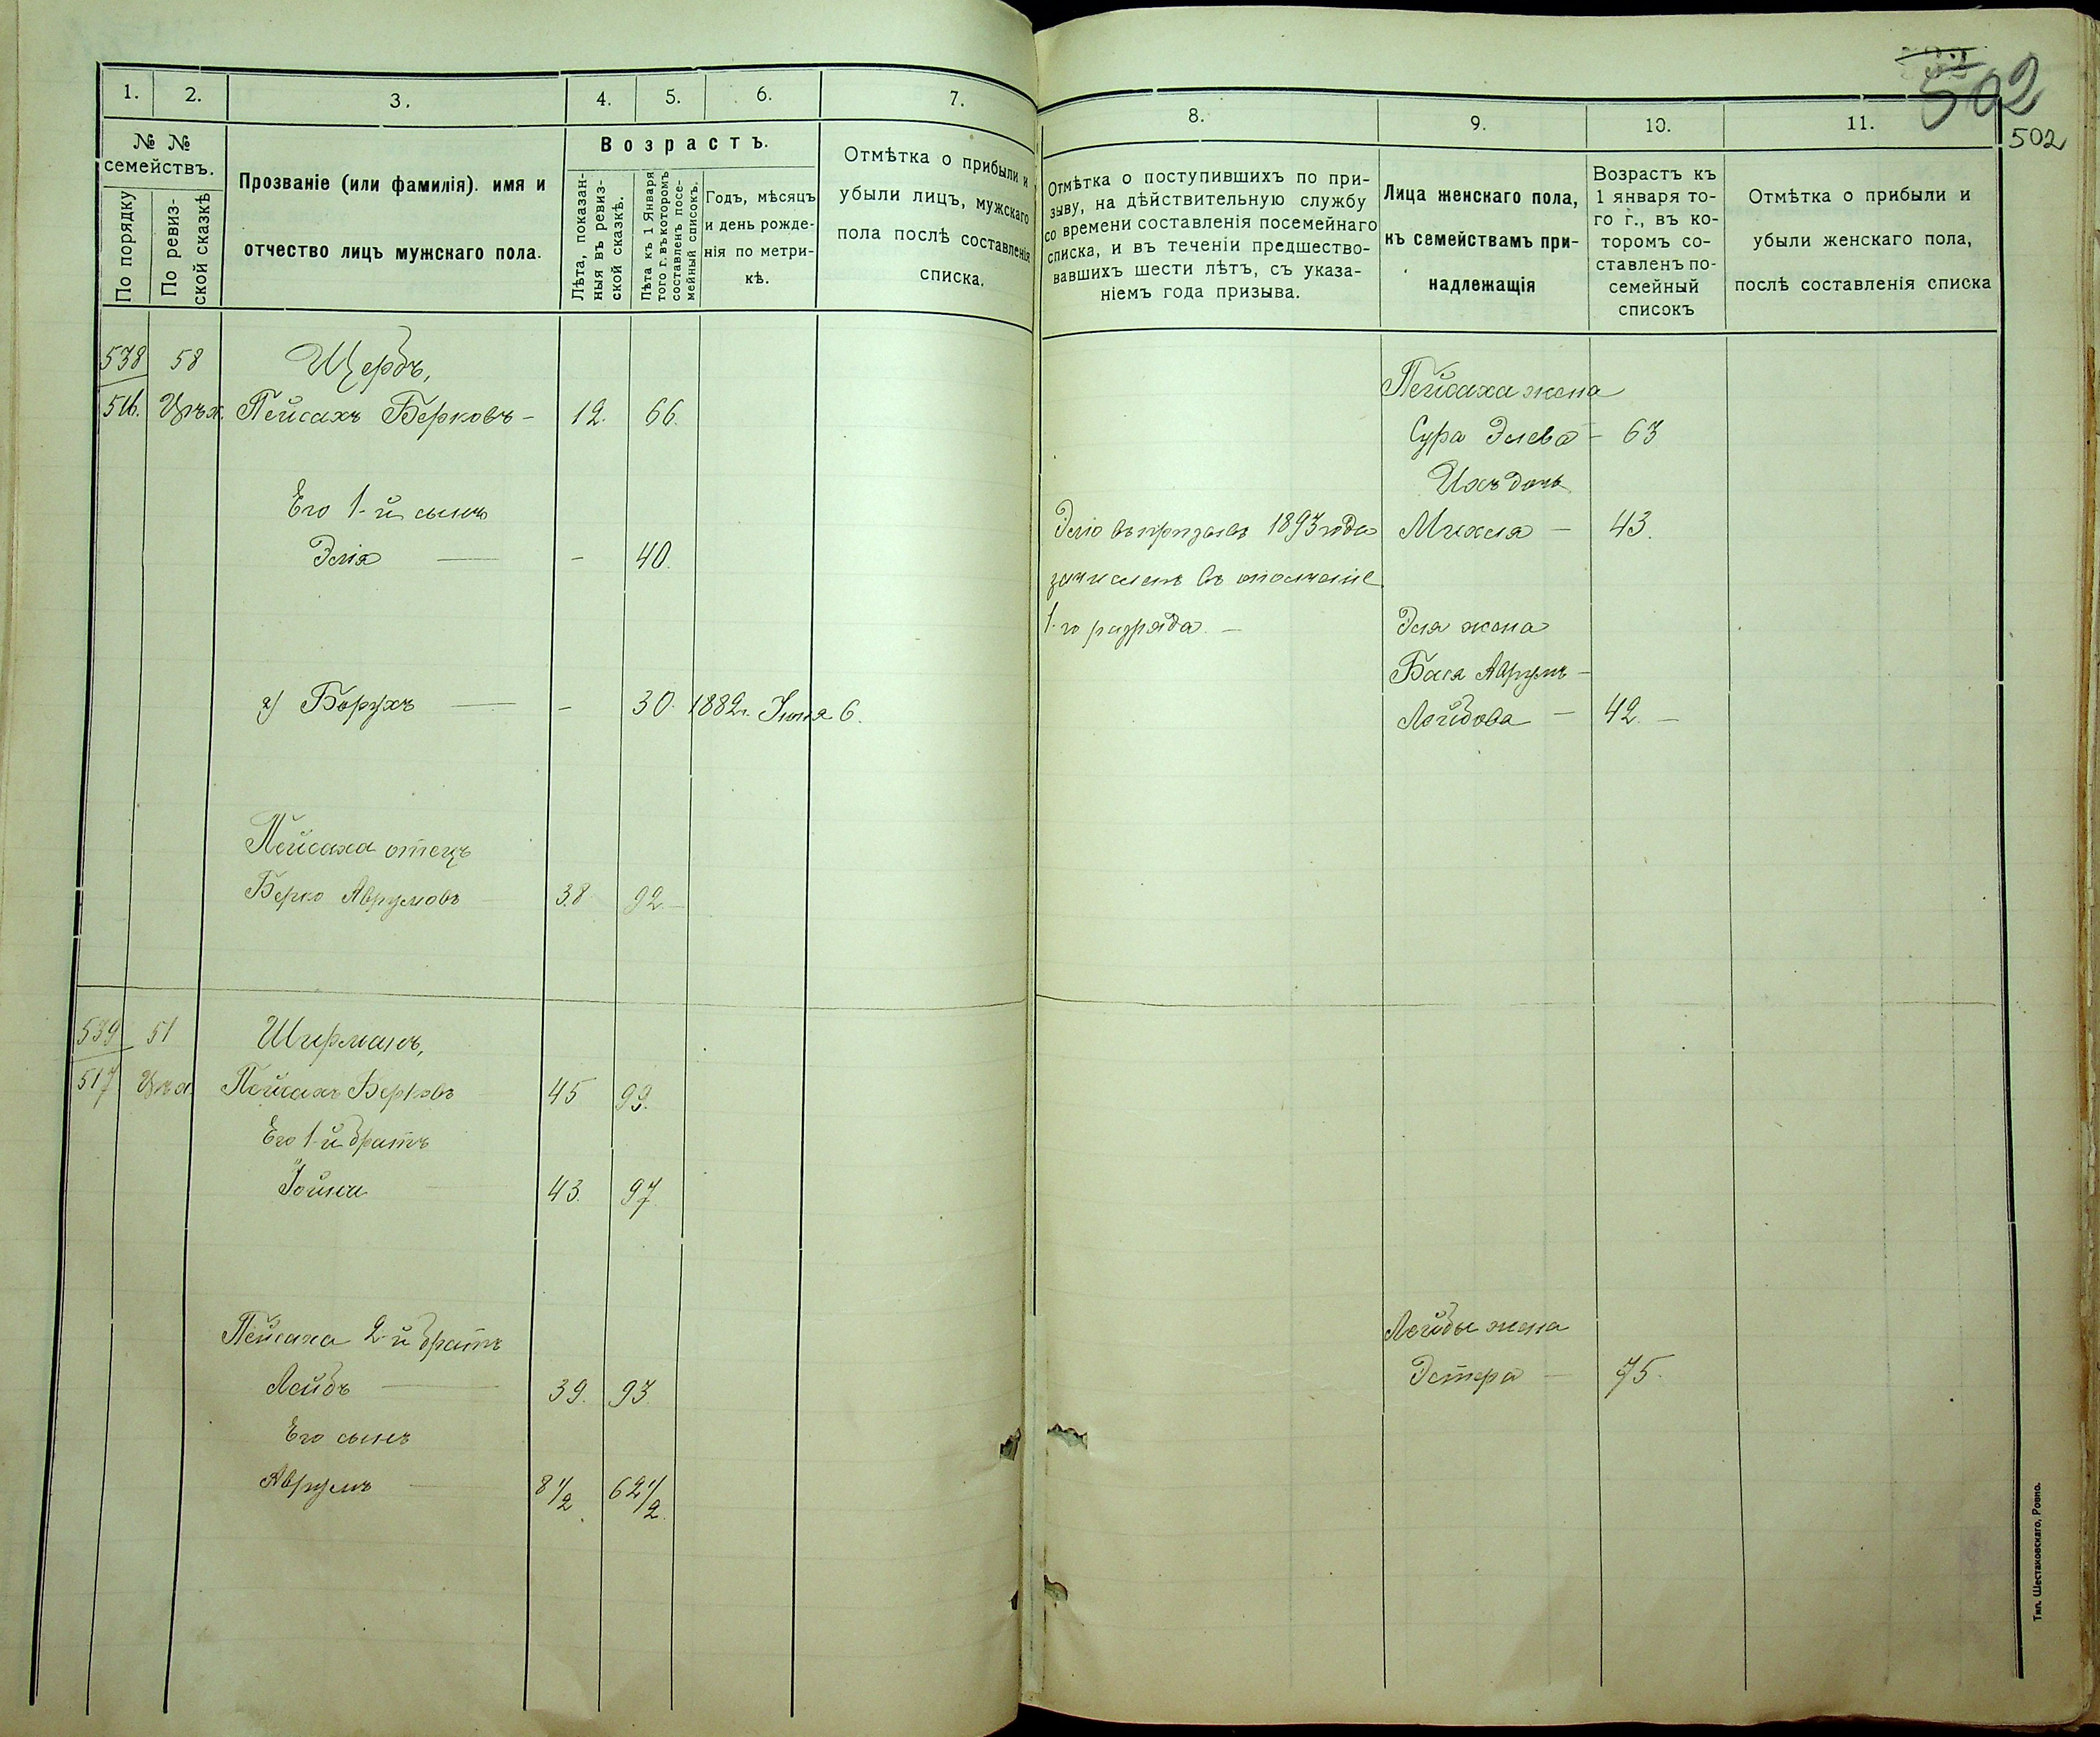 502
502
1. 2. 3. 4. 5. 6. 7.
№ №
семействъ.
По порядку
По ревиз-
ской сказкѣ
Прозваніе (или фамилія). имя и
отчество лицъ мужскаго пола.
Возрастъ.
Лѣта, показан-
ныя въ ревиз-
ской сказкѣ.
Лѣта къ 1 Января
того г. въ которомъ
составленъ посе-
мейный списокъ.
Годъ, мѣсяцъ
и день рожде-
нія по метри-
кѣ.
Отмѣтка о прибыли и
убыли лицъ, мужскаго
пола послѣ составленія
списка.
538 58 Щербъ,
516. Пейсахъ Берковъ - 12. 66.
Его 1-й сынъ
Элія - 40.
2) Борухъ - 30. 1882 г. Іюня 6.
Пейсаха отецъ
Берко Аврумовъ 38 92
539 51 Ширманъ,
517 Пейсахъ Берковъ 45 99.
Его 1-й братъ
Іойна 43. 97
Пейсаха 2-й братъ
Лейбъ 39. 93
Его сынъ
Аврумъ 8 1/2 62 1/2
8. 9. 10. 11.
Отмѣтка о поступившихъ по при-
зыву, на дѣйствительную службу
со времени составленія посемейнаго
списка, и въ теченіи предшество-
вавшихъ шести лѣтъ, съ указа-
ніемъ года призыва.
Лица женскаго пола,
къ семействамъ при-
надлежащія
Возрастъ къ
1 января то-
го г., въ ко-
торомъ со-
ставленъ по-
семейный
списокъ
Отмѣтка о прибыли и
убыли женскаго пола,
послѣ составленія списка
Пейсаха жена
Сура Элева - 63
Ихъ дочь
Элio въ призывъ 1893 года Михля - 43.
зачисленъ въ ополченіе
1-го разряда. - Эля жена
Бася Аврумъ -
Лейбова - 42. -
Лейбы жена
Эстера - 75.
Тип. Шестаковскаго, Ровно.